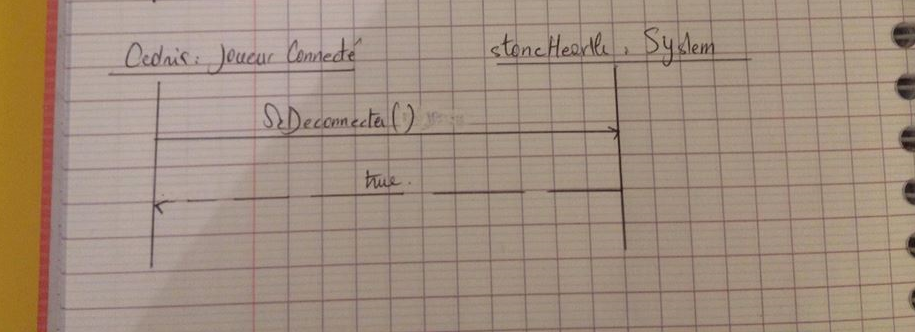 Cedric: Joueur Connecté
stoneHearth: System
SeDeconnecter()
true